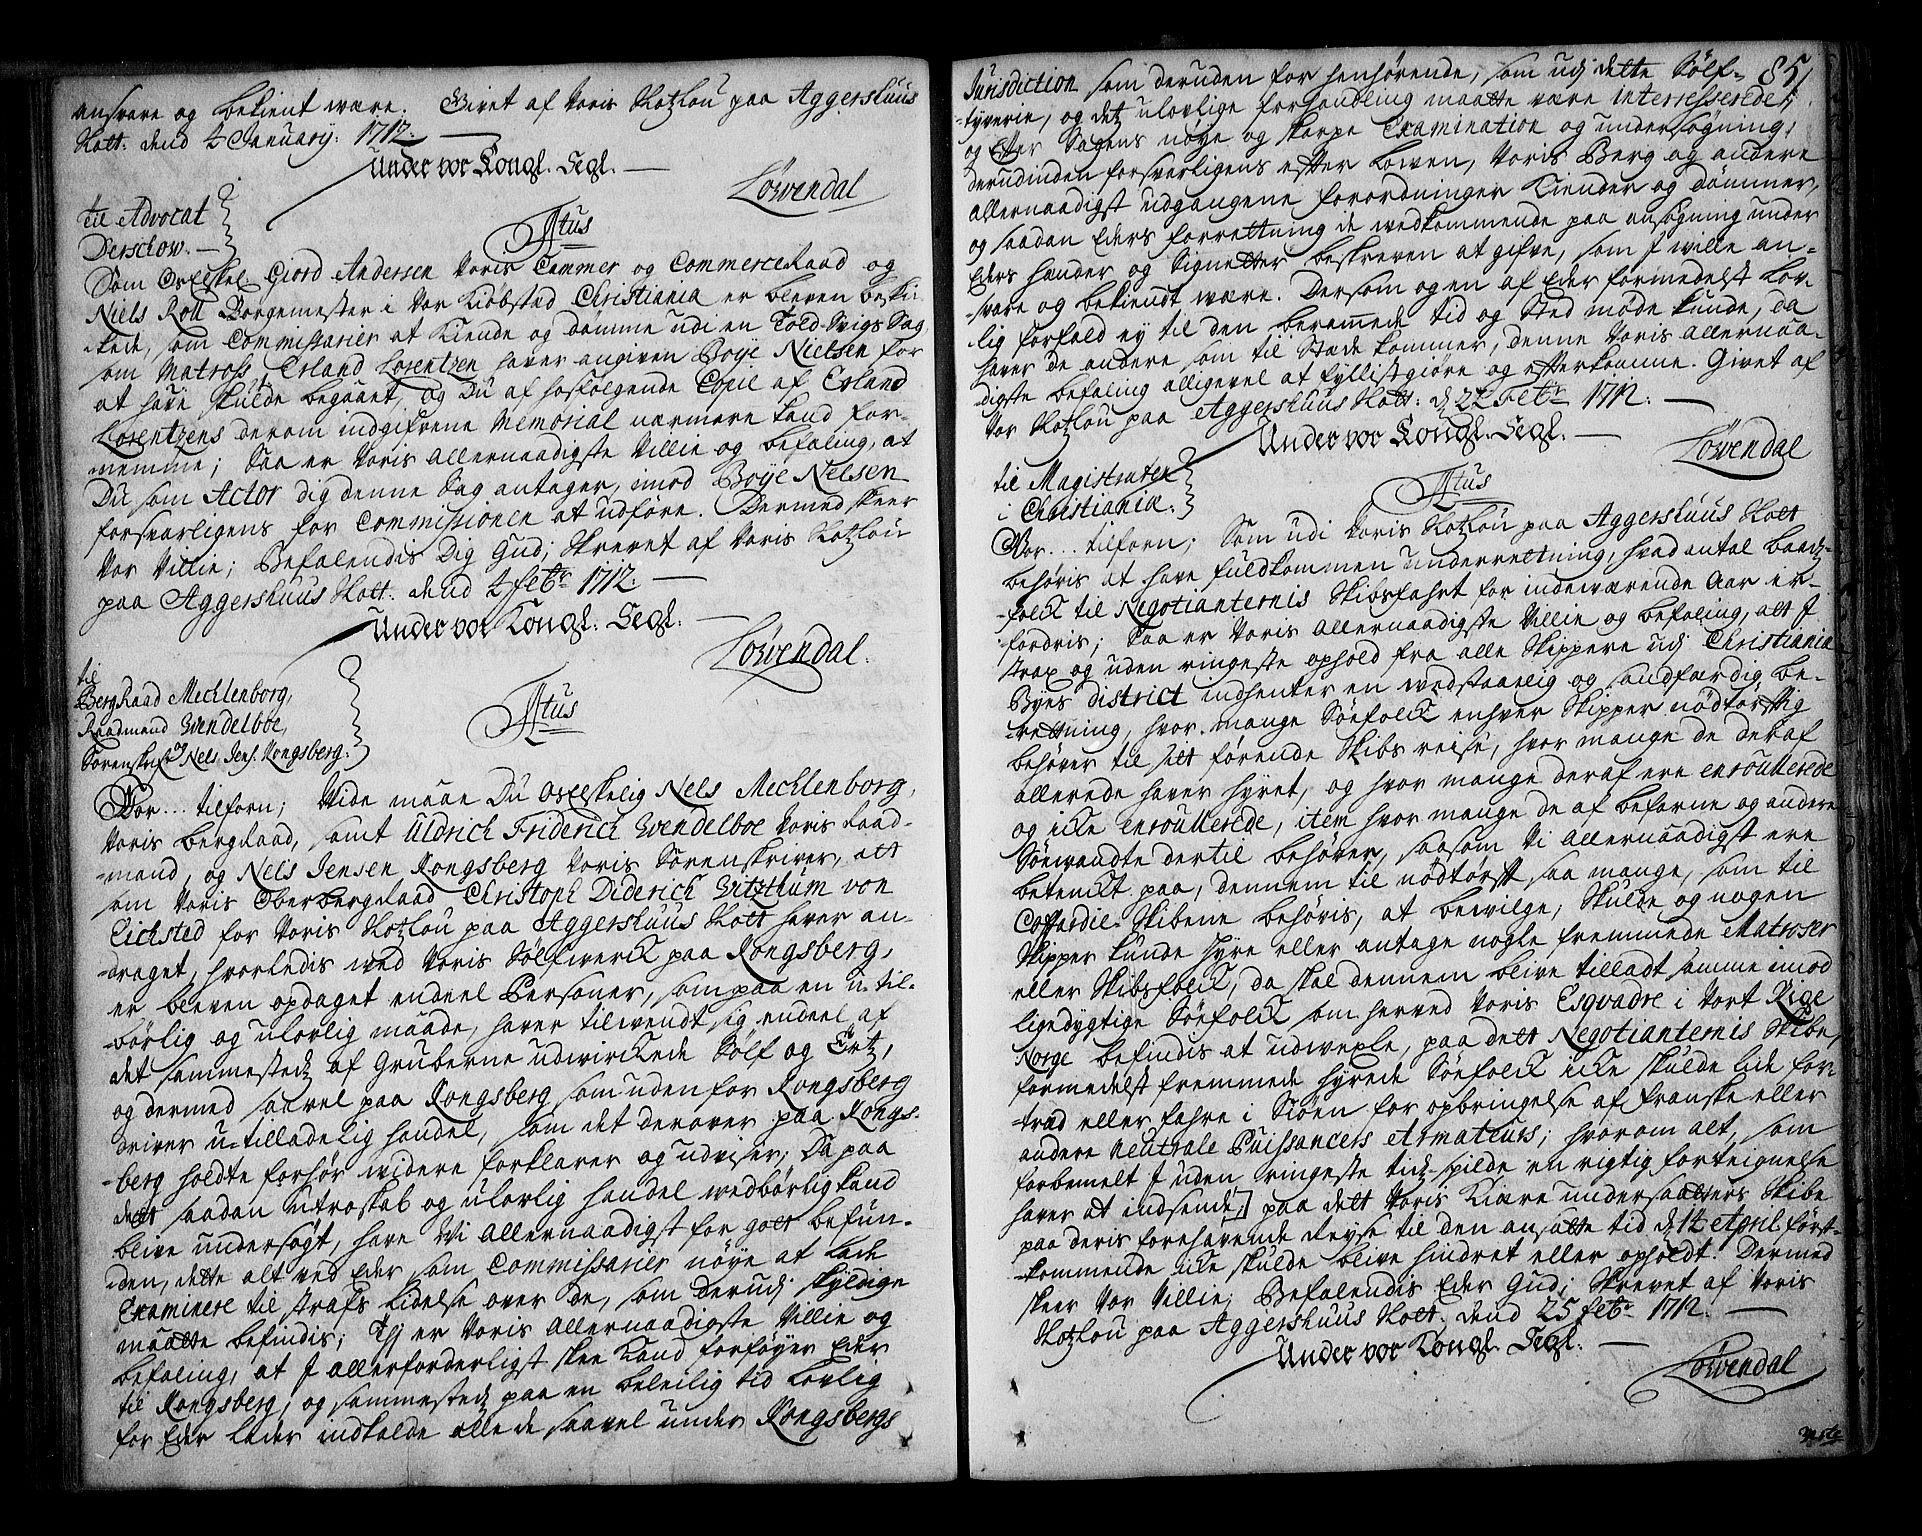 ansvare og bekient være. Givet af Voris Slotzlou paa Aggershuus
Slott. dend 4 January: 1712.
Under vor Kongl. Segl.
Löwendal
til Advocat
Derschow.
Titus
Som Os Elskel. Giord Andersen Voris Cammer og CommerceRaad og
Niels Roll Borgemester i Vor Kiöbsted Christiania er bleven beski-
kede, som Commissarier at Kiende og dömme udi en Told-Svigs Sag,
som Matross Erland Lorentzen haver angiven Boye Nielsen for
at have skulde begaaet, og Du af hosfölgende Copie af Erland
Lorentzens derom indgifvene Memorial nærmere kand for-
nemme; Saa er Voris allernaadigste Villie og befaling, at
Du som Actor dig denne Sag antager, imod Boye Nelsen
forsvarligens for Commissionen at udföre. Dermed skeer
Vor Villie; Befalendis Dig Gud; Skrevet af Voris Slotzlou
paa Aggershuus Slott. dend 4 febr: 1712.
Under vor Kongl. Segl.
Löwendal.
til
BergRaad Mecklenborg,
Raadmand Wendelboe,
Sorenskrifr Nels Jens. Kongsberg.
Titus
Vor... tilforn; Vide maae Du Os Elskelig Nels Mecklenborg,
Voris bergRaad, samt Uldrich Friderich Wendelboe Voris Raad-
-mand, og Nels Jensen Kongsberg Voris Sorenskriver, att
som Voris OberbergRaad Christoph Diderich Vitzthum von
Eichsted for Voris Slotzlou paa Aggershuus Slott haver an-
-draget, hvorledis ved Voris Sölfwerck paa Kongsberg,
er bleven opdaget endeel Personer, som paa en u-til-
-börlig og ulovlig maade, haver tilwendt sig endeel af
det sammestedz af Gruberne udwirckede Sölf og Ertz,
og dermed saavel paa Kongsberg som uden for Kongsberg
driver u-tilladelig handel, som det derover paa Kongs-
-berg holdte forhör videre forklarer og udviser; Da paa
dett saadan utroskab og ulovlig handel wedbörlig kand
blive undersögt, have Vi allernaadigst for gott befun-
-den, dette alt ved Eder som Commissarier nöye at lade
Examinere til strafs lidelse over de, som derudj skyldige
maatte befindis; Thj er Voris allernaadigste Villie og
befaling, at I allerforderligst skee kand forföyer Eder
til Kongsberg, og sammestedz paa en beleilig tid lovlig
for Eder lader indkalde alle de saavel under Kongsbergs
85
Jurisdiction som deruden for henhörende, som udj dette Sölf-
-tyverie, og det ulovlige forhandling maatte være interresserede;
og Efter Sagens nöye og skarpe Examination og undersögning,
derudinden forsvarligens efter Lowen, Voris Berg og andere
allernaadigst udgangene forordninger Kiender og dömmer,
og saadan Eders forrettning de vedkommende paa ansögning under
Eders hænder og Signetter beskreven at gifve, som I wille an-
-svare og bekiendt være. Dersom og en af Eder formedelst Lov-
-lig forfald ey til den beramede tid og Sted möde kunde, da
haver de andere som til Stæde kommer, denne Voris allernaa-
-digste befaling alligevel at fyllistgiöre og efterkomme. Givet af
Vor Slotzlou paa Aggershuus Slott: d 22 febr 1712.
Under vor Kongl. Segl.
Löwendal
til Magistraten
i Christiania.
Titus
Vor... tilforn; Som udi Voris Slotzlou paa Aggershuus Slott
behöris at have fuldkommen underrettning, hvad antal baadz-
-folck til Negotianternis Skibsfahrt for indeværende Aar er-
fordris; Saa er Voris allernaadigste Villie og befaling, att I
strax og uden ringeste ophold fra alle Skippere udj Christiania
Byes district indhenter en wedstaaelig og sandfærdig be-
-rettning, hvor mange Söefolck enhver Skipper nödtörftig
behöver til sitt förende Skibs reise, hvor mange de deraf
allerede haver hyret, og hvor mange deraf ere enroullerede
og icke enroullerede, item hvor mange de af befarne og andere
Söevandte dertil behöver, saasom Vi allernaadigst ere
betenckt paa, dennem til nödtörft saa mange, som til
Coffardie-Skibene behöris, at bewilge; Skulde og nogen
Skipper kunde hyre eller antage nogle fremmede Matroser
eller Skibsfolck, da skal dennem blive tilladt samme imod
ligedygtige Söefolck som herved Voris Esqvadre i Vort Rige
Norge befindis at udwexle, paa dett Negotianternis Skibe,
formedelst fremmede hyrede Söefolck icke skulde lide for-
træd eller fahre i Siöen for opbringelse af franske eller
andere Neutrale Puissancers Armateurs; hvorom alt, som
forbemelt I uden ringeste tidz-spilde en rigtig forteignelse
haver at indsende,] paa dett Voris Kiære undersaatters Skibe
paa deris forehavende Reyse til den ansatte tid d 14 April först-
-kommende icke skulde blive hindret eller opholdt. Dermed
skeer Vor Villie; Befalendis Eder Gud; Skrevet af Voris
Slotzlou paa Aggershuus Slott. dend 25 febr 1712.
Under vor Kongl. Segl.
Löwendal